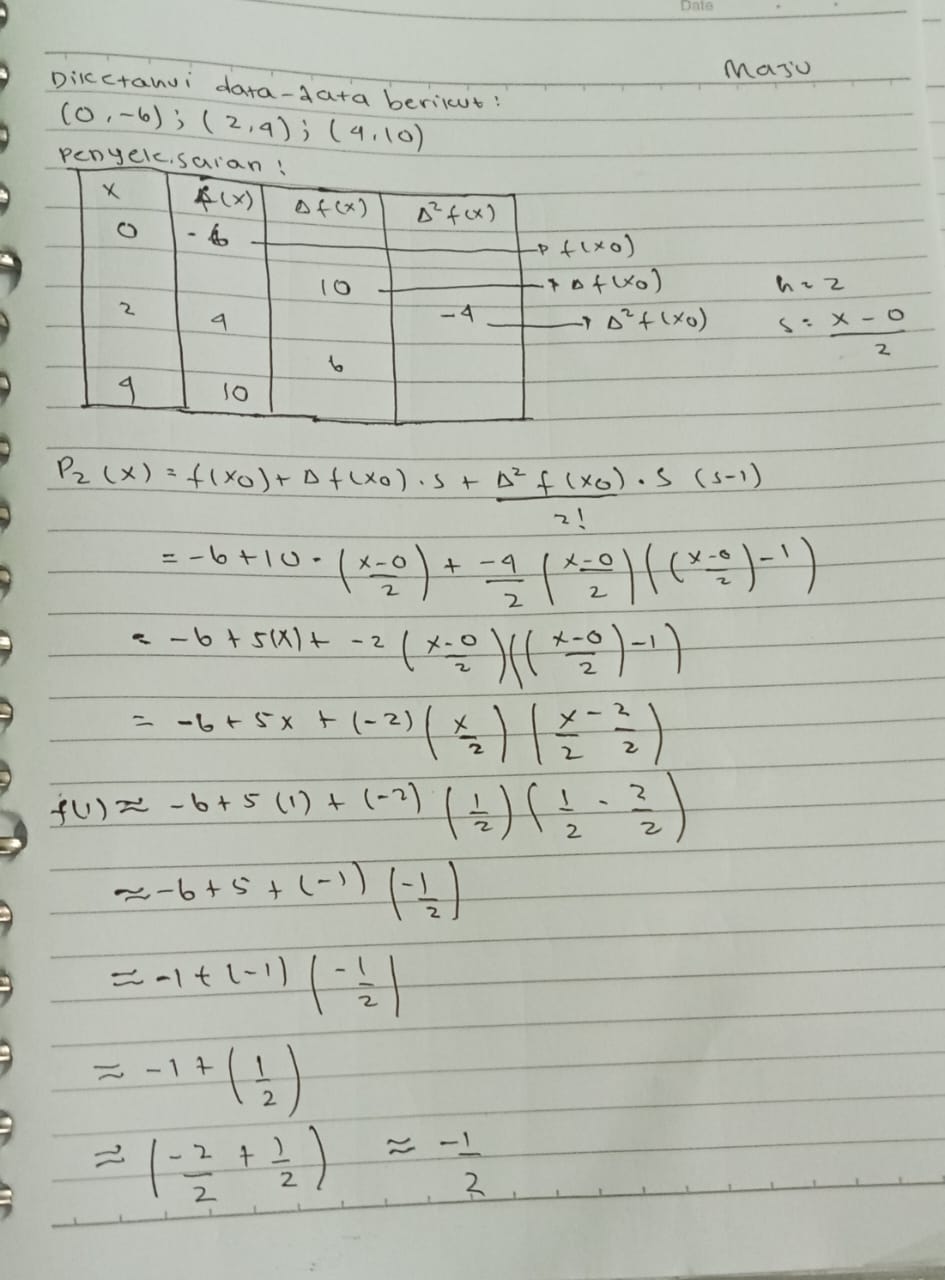 Date
Maju
Diketahui data-data berikut :
(0,-6) ; (2,4) ; (4,10)
Penyelesaian :
x f(x) Δf(x) Δ²f(x)
0 -6 → f(x0)
10 → Δf(x0) h = 2
2 4 -4 → Δ²f(x0) s = x-0/2
6
4 10
P2(x) = f(x0) + Δf(x0) . s + Δ²f(x0)/2! . s (s-1)
= -6 + 10 . (x-0/2) + -4/2 (x-0/2) ((x-0/2) -1)
= -6 + 5(x) + -2 (x-0/2) ((x-0/2) -1)
= -6 + 5x + (-2) (x/2) (x/2 - 2/2)
f(1) ≈ -6 + 5 (1) + (-2) (1/2) (1/2 - 2/2)
≈ -6 + 5 + (-1) (-1/2)
≈ -1 + (-1) (-1/2)
≈ -1 + (1/2)
≈ (-2/2 + 1/2) ≈ -1/2